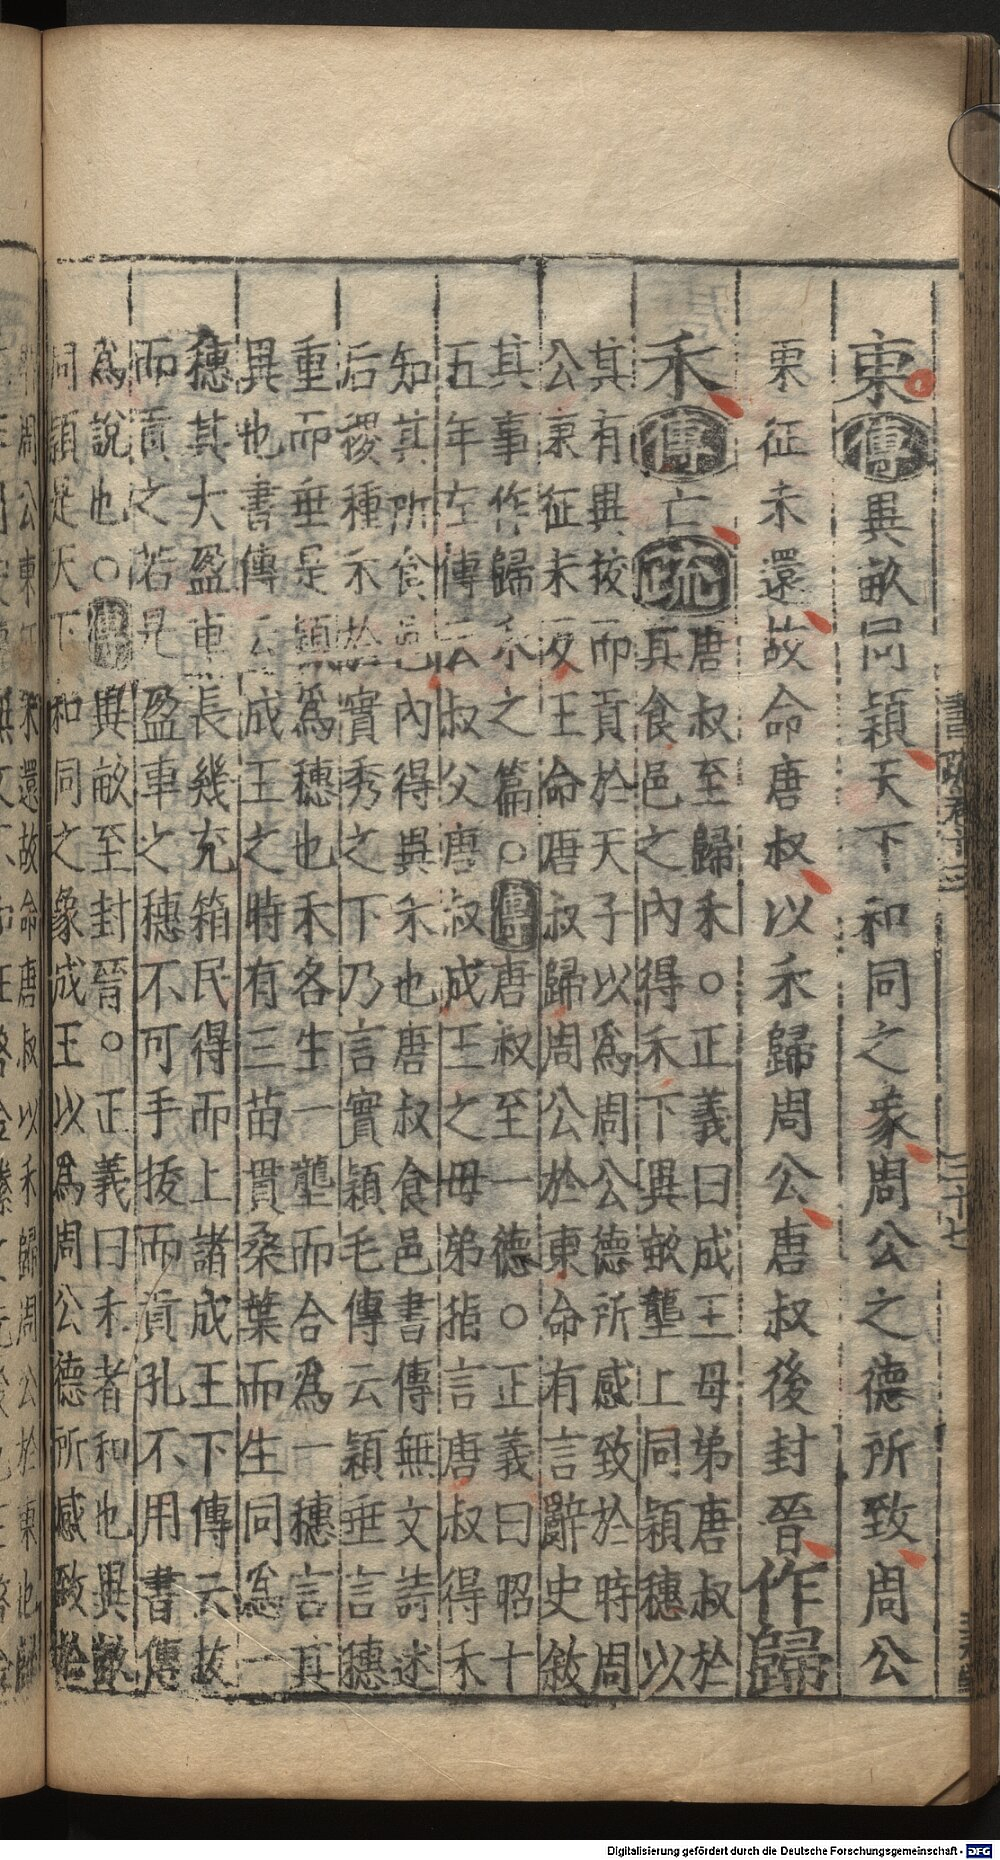 東傳異畝同穎天下和同之象周公之德所致周公
東征未還故命唐叔以禾歸周公唐叔後封晉作歸
禾傳亡疏
唐叔至歸禾○正義曰成王母弟唐叔於
其食邑之內得禾下異畝壟上同穎穗以
其有異拔而貢於天子以爲周公德所感致於時周
公東征未反王命唐叔歸周公於東命有言辭史敘
其事作歸禾之篇○傳唐叔至一德○正義曰昭十
五年左傳云叔父唐叔成王之母弟指言唐叔得禾
知其所食邑內得異禾也唐叔食邑書傳無文詩述
后稷種禾於實秀之下乃言實穎毛傳云穎垂言穗
重而垂是穎爲穗也禾各生一壟而合爲一穗言其
異也書傳云成王之時有三苗貫桑葉而生同爲一
穗其大盈車長幾充箱民得而上諸成王下傳云故
而貢之若是盈車之穗不可手拔而貢孔不用書傳
爲說也○傳異畝至封晉○正義曰禾者和也異畝
同穎是天下和同之象成王以爲周公德所感致於
書疏卷十三
三十七
周公東
未還故命唐叔以禾歸周公於東也歸
Digitalisierung gefördert durch die Deutsche Forschungsgemeinschaft - DFG